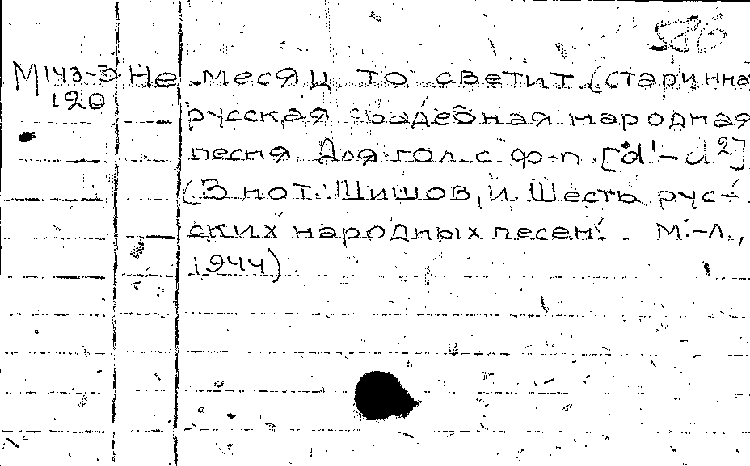 586
М143-3 Не месяц то светит (старинная
120
русская свадебная народная
песня. Для гол. с ф-п. [d¹-d²]
(В нот.: Шишов, И. Шесть рус-
ских народных песен. М.-Л.,
1944)